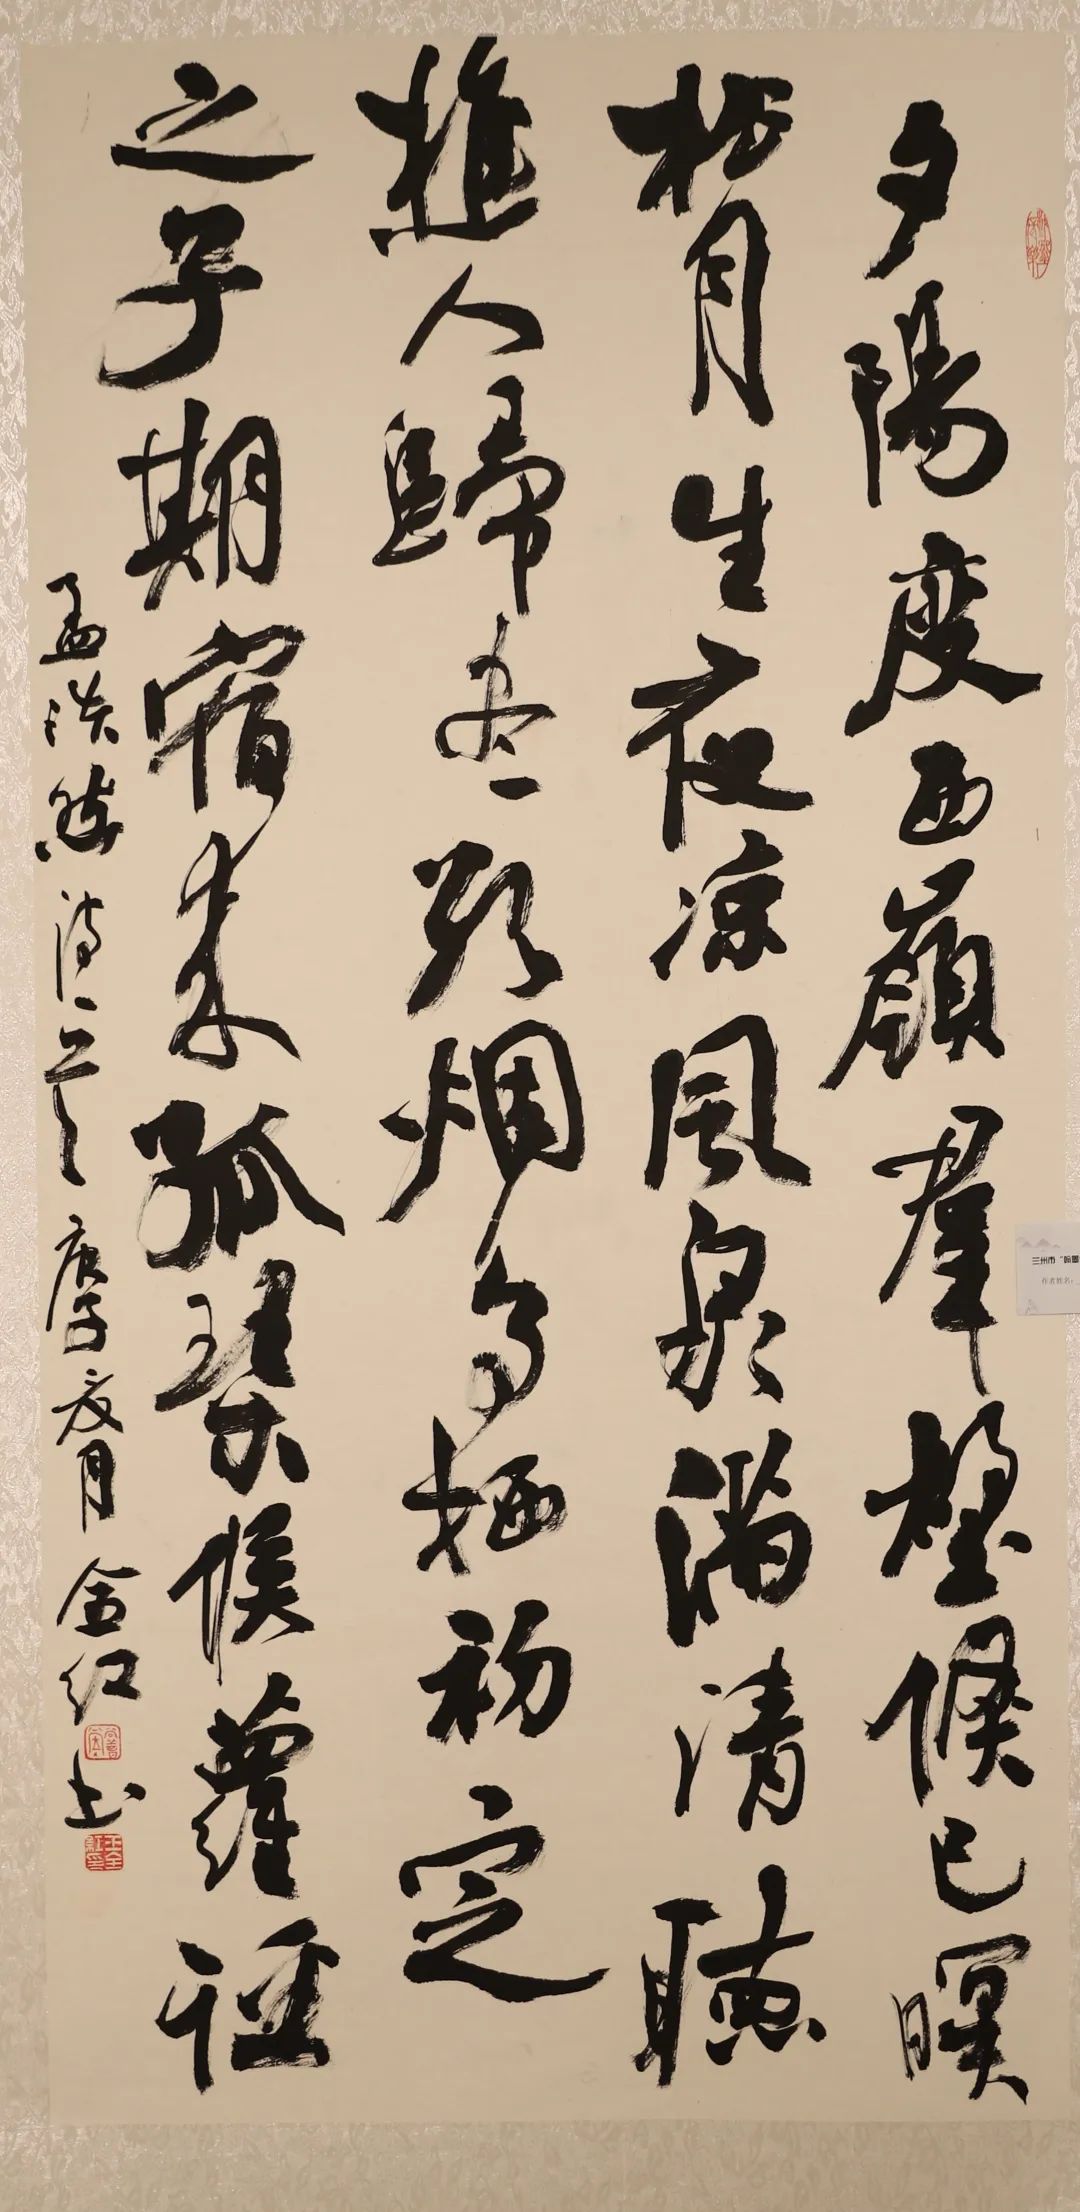 夕陽度西嶺羣壑倏已暝
松月生夜凉風泉滿清聽
樵人歸盡欲烟鳥栖初定
之子期宿来孤琴候蘿径
孟浩然詩一首 庚子夏月 金红书
兰州市“翰墨
作者姓名：